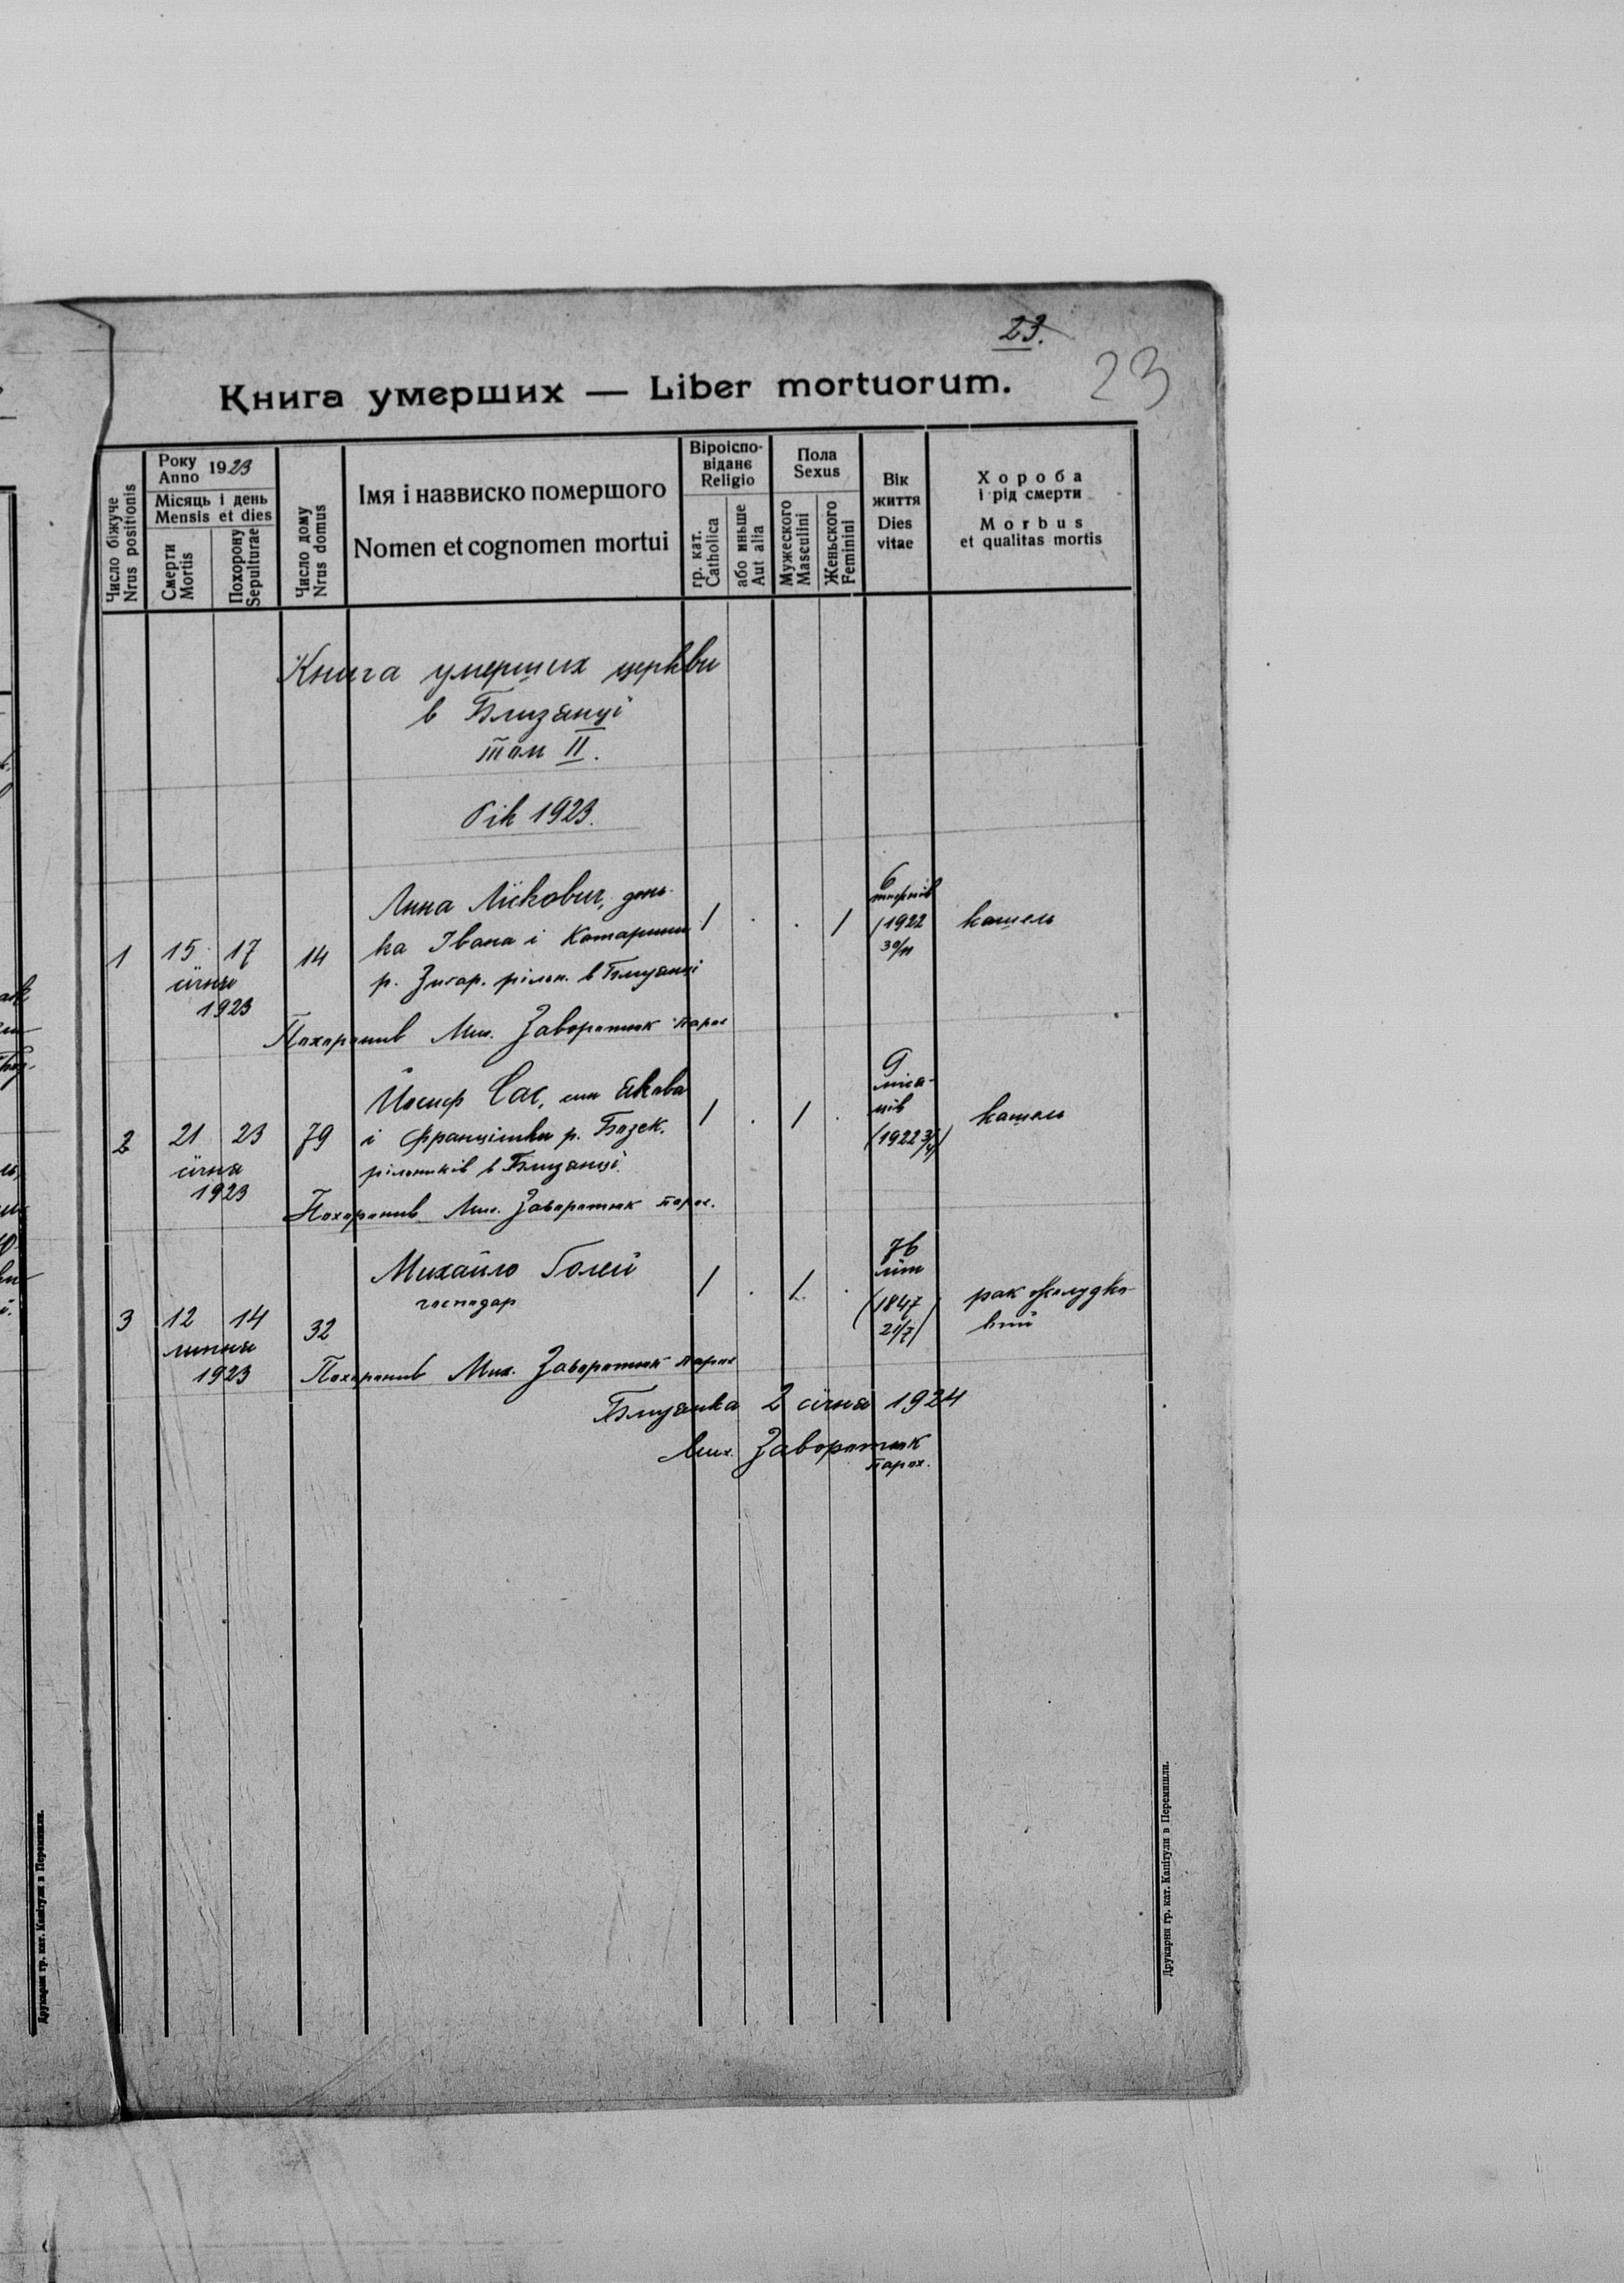 23.
23
Книга умерших — Liber mortuorum.
Число біжуче
Nrus positionis
Року
Anno 1923
Місяць і день
Mensis et dies
Смерти
Mortis
Похорону
Sepulturae
Число дому
Nrus domus
Імя і назвиско помершого
Nomen et cognomen mortui
Віроіспо-
відане
Religio
гр. кат.
Catholica
або иньше
Aut alia
Пола
Sexus
Мужеского
Masculini
Женьского
Feminini
Вік
життя
Dies
vitae
Хороба
і рід смерти
Morbus
et qualitas mortis
Книга умерших церкви
в Близянці
том II.
Рік 1923.
1 15 17 14
січня
1923
Анна донь-
ка Івана і Катарини
р. рільн. в Близянці
1 . . 1
6
тижнів
(1922
30/11
кашель
Похоронив Мих. Заворотюк парох
2 21 23 79
січня
1923
Йосиф Сас, син Якова
і Францішки р.
рільників в Близянці
1 . 1 .
9
міся-
ців
(1922
кашель
Похоронив Мих. Заворотюк парох.
3 12 14 32
липня
1923
Михайло Голей
господар
1 . 1 .
76
літ
(1847
21/7)
рак жолудко-
вий
Похоронив Мих. Заворотюк парох
Близянка 2 січня 1924
Мих. Заворотюк
парох.
Друкарня гр. кат. Капітули в Перемишли.
Друкарня гр. кат. Капітули в Перемишли.